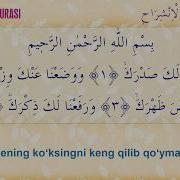 URASI الْاِنْشِرَاح
بِسْمِ اللَّهِ الرَّحْمَٰنِ الرَّحِيمِ
لَكَ صَدْرَكَ ﴿١﴾ وَوَضَعْنَا عَنْكَ وِزْ
ظَهْرَكَ ﴿٣﴾ وَرَفَعْنَا لَكَ ذِكْرَكَ ﴿
ening ko‘ksingni keng qilib qo‘yma